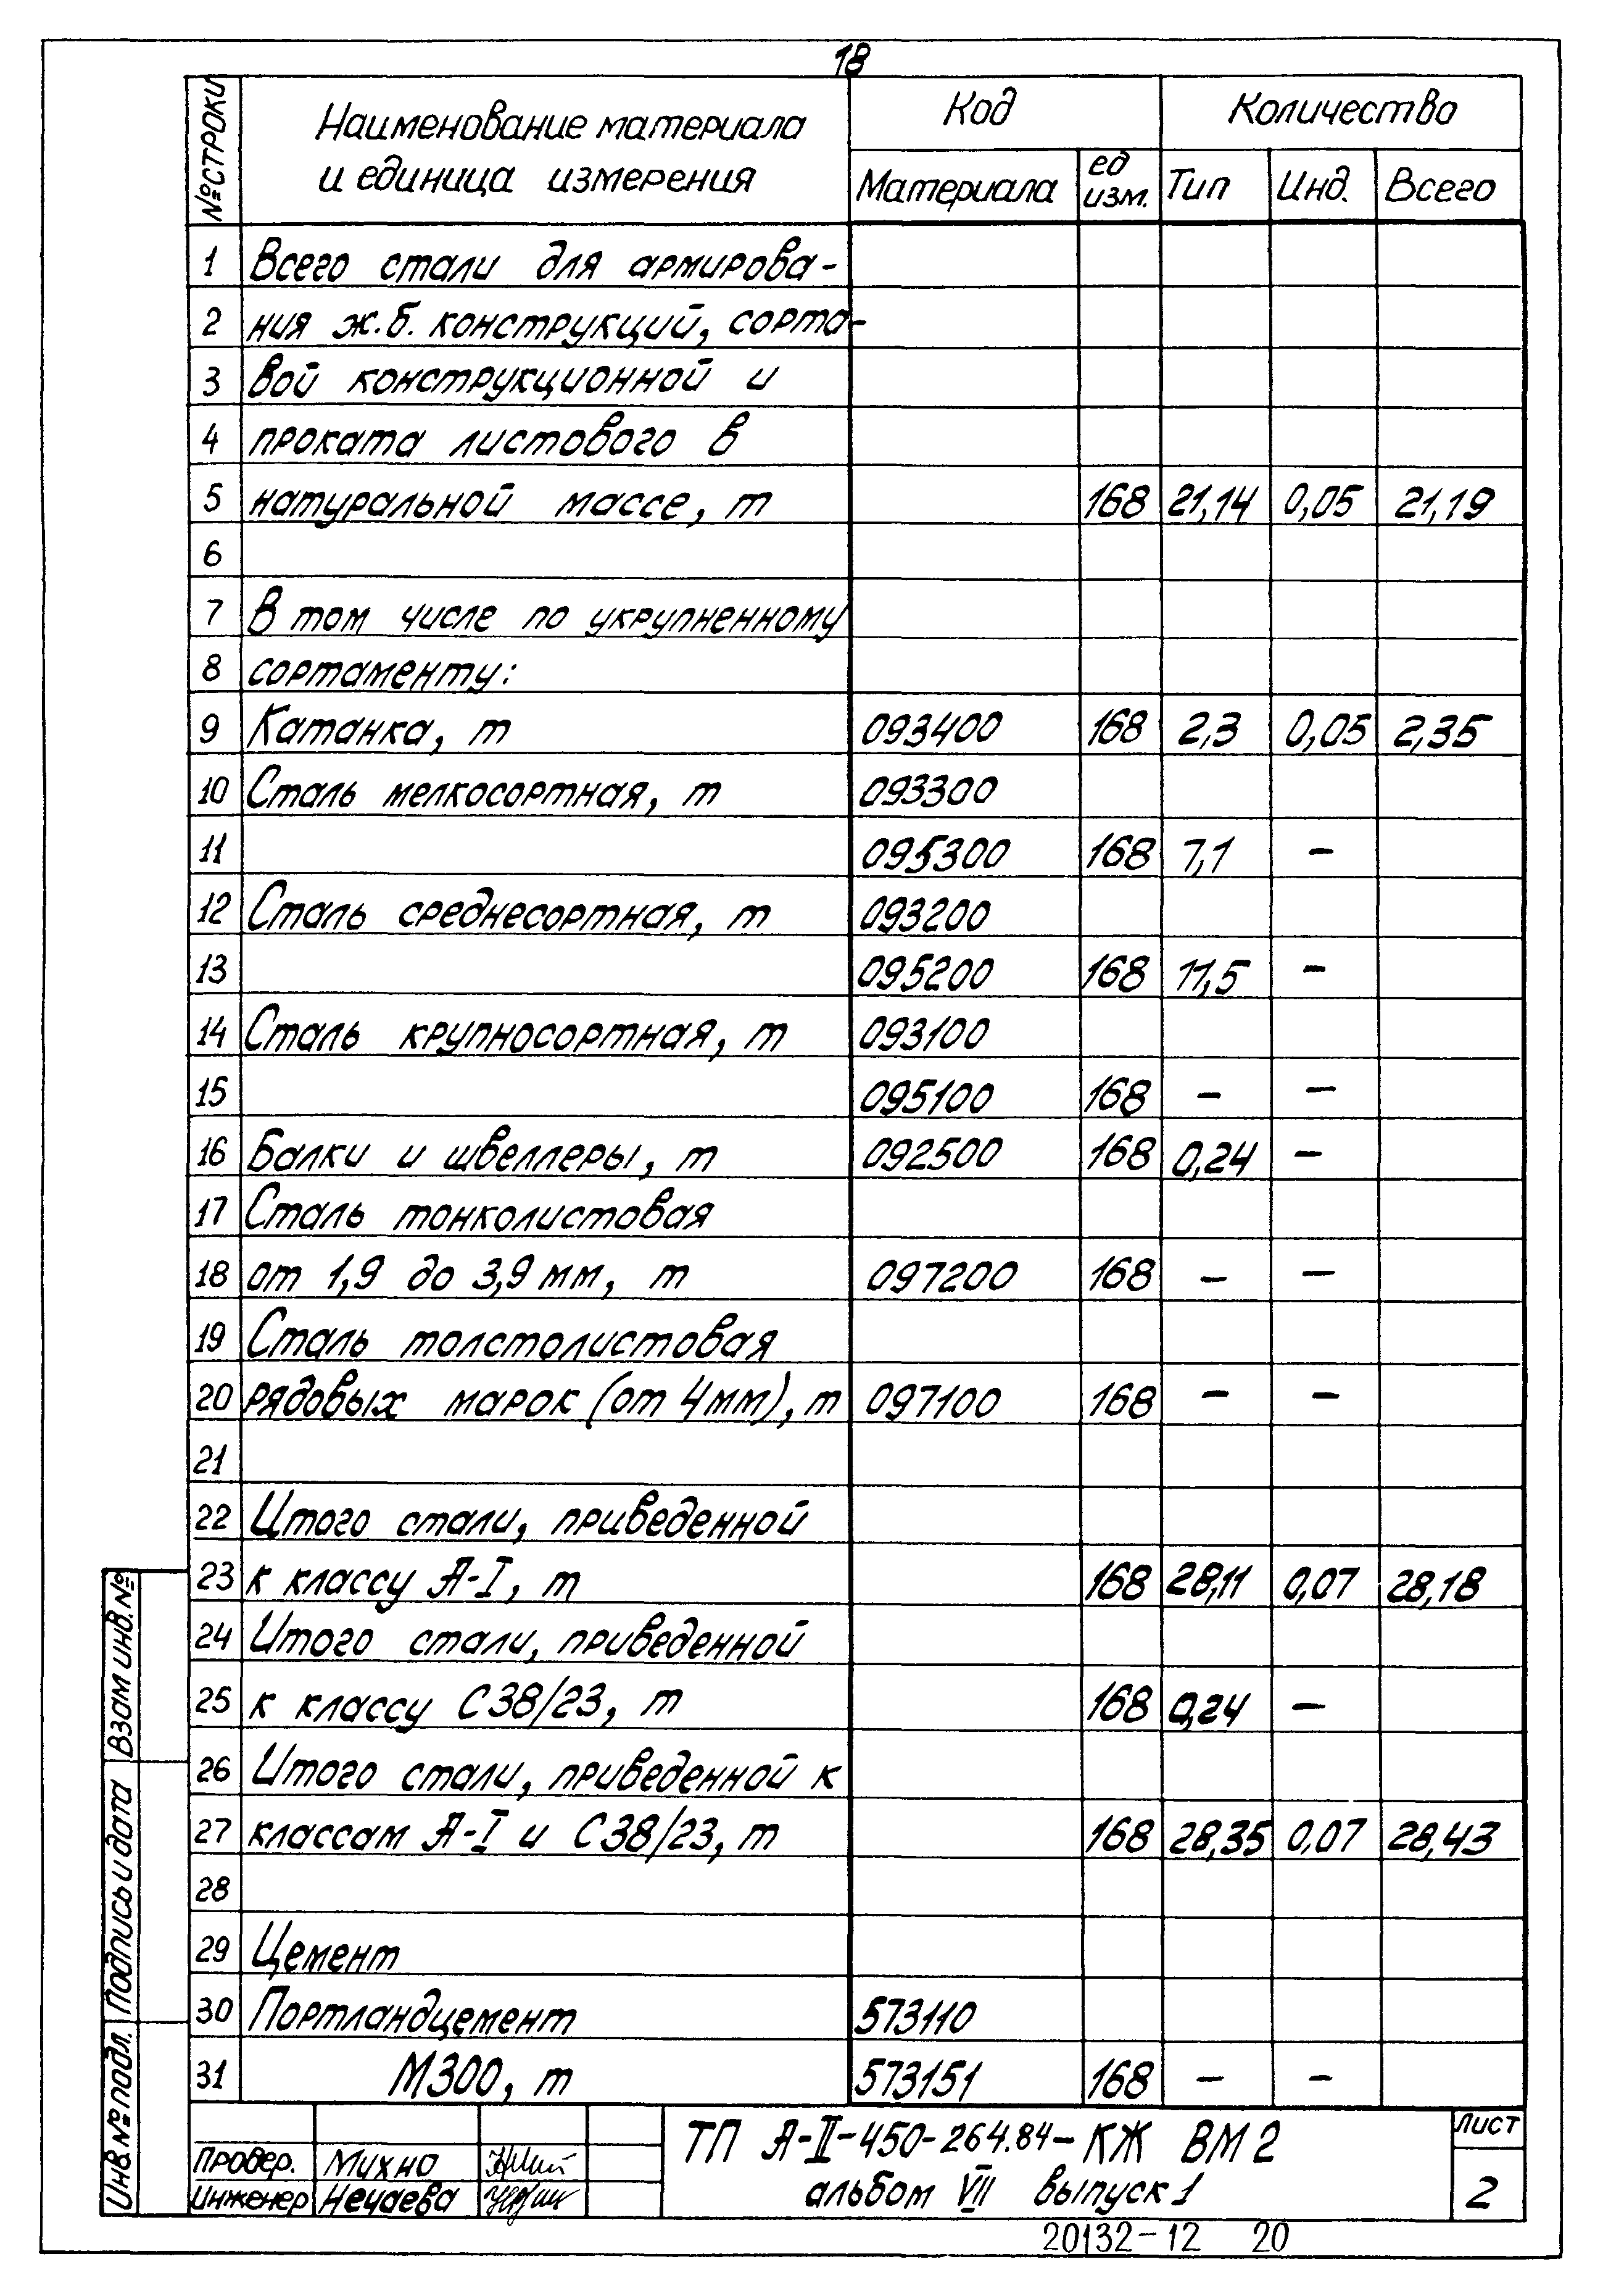 18
№ СТРОКИ Наименование материала и единица измерения Код Количество
Материала ед изм. Тип Инд. Всего
1 Всего стали для армирова-
2 ния ж.б. конструкций, сорто-
3 вой конструкционной и
4 проката листового в
5 натуральной массе, т 168 21,14 0,05 21,19
6
7 В том числе по укрупненному
8 сортаменту:
9 Катанка, т 093400 168 2,3 0,05 2,35
10 Сталь мелкосортная, т 093300
11 095300 168 7,1 –
12 Сталь среднесортная, т 093200
13 095200 168 11,5 –
14 Сталь крупносортная, т 093100
15 095100 168 – –
16 Балки и швеллеры, т 092500 168 0,24 –
17 Сталь тонколистовая
18 от 1,9 до 3,9 мм, т 097200 168 – –
19 Сталь толстолистовая
20 рядовых марок (от 4мм), т 097100 168 – –
21
22 Итого стали, приведенной
23 к классу А-I, т 168 28,11 0,07 28,18
24 Итого стали, приведенной
25 к классу С38/23, т 168 0,24 –
26 Итого стали, приведенной к
27 классам А-I и С38/23, т 168 28,35 0,07 28,43
28
29 Цемент
30 Портландцемент 573110
31 М300, т 573151 168 – –
Инв.№ подл. Подпись и дата Взам инв.№
Провер. Михно
Инженер Нечаева
ТП А-II-450-264.84-КЖ ВМ2
альбом VII выпуск 1
Лист
2
20132-12 20